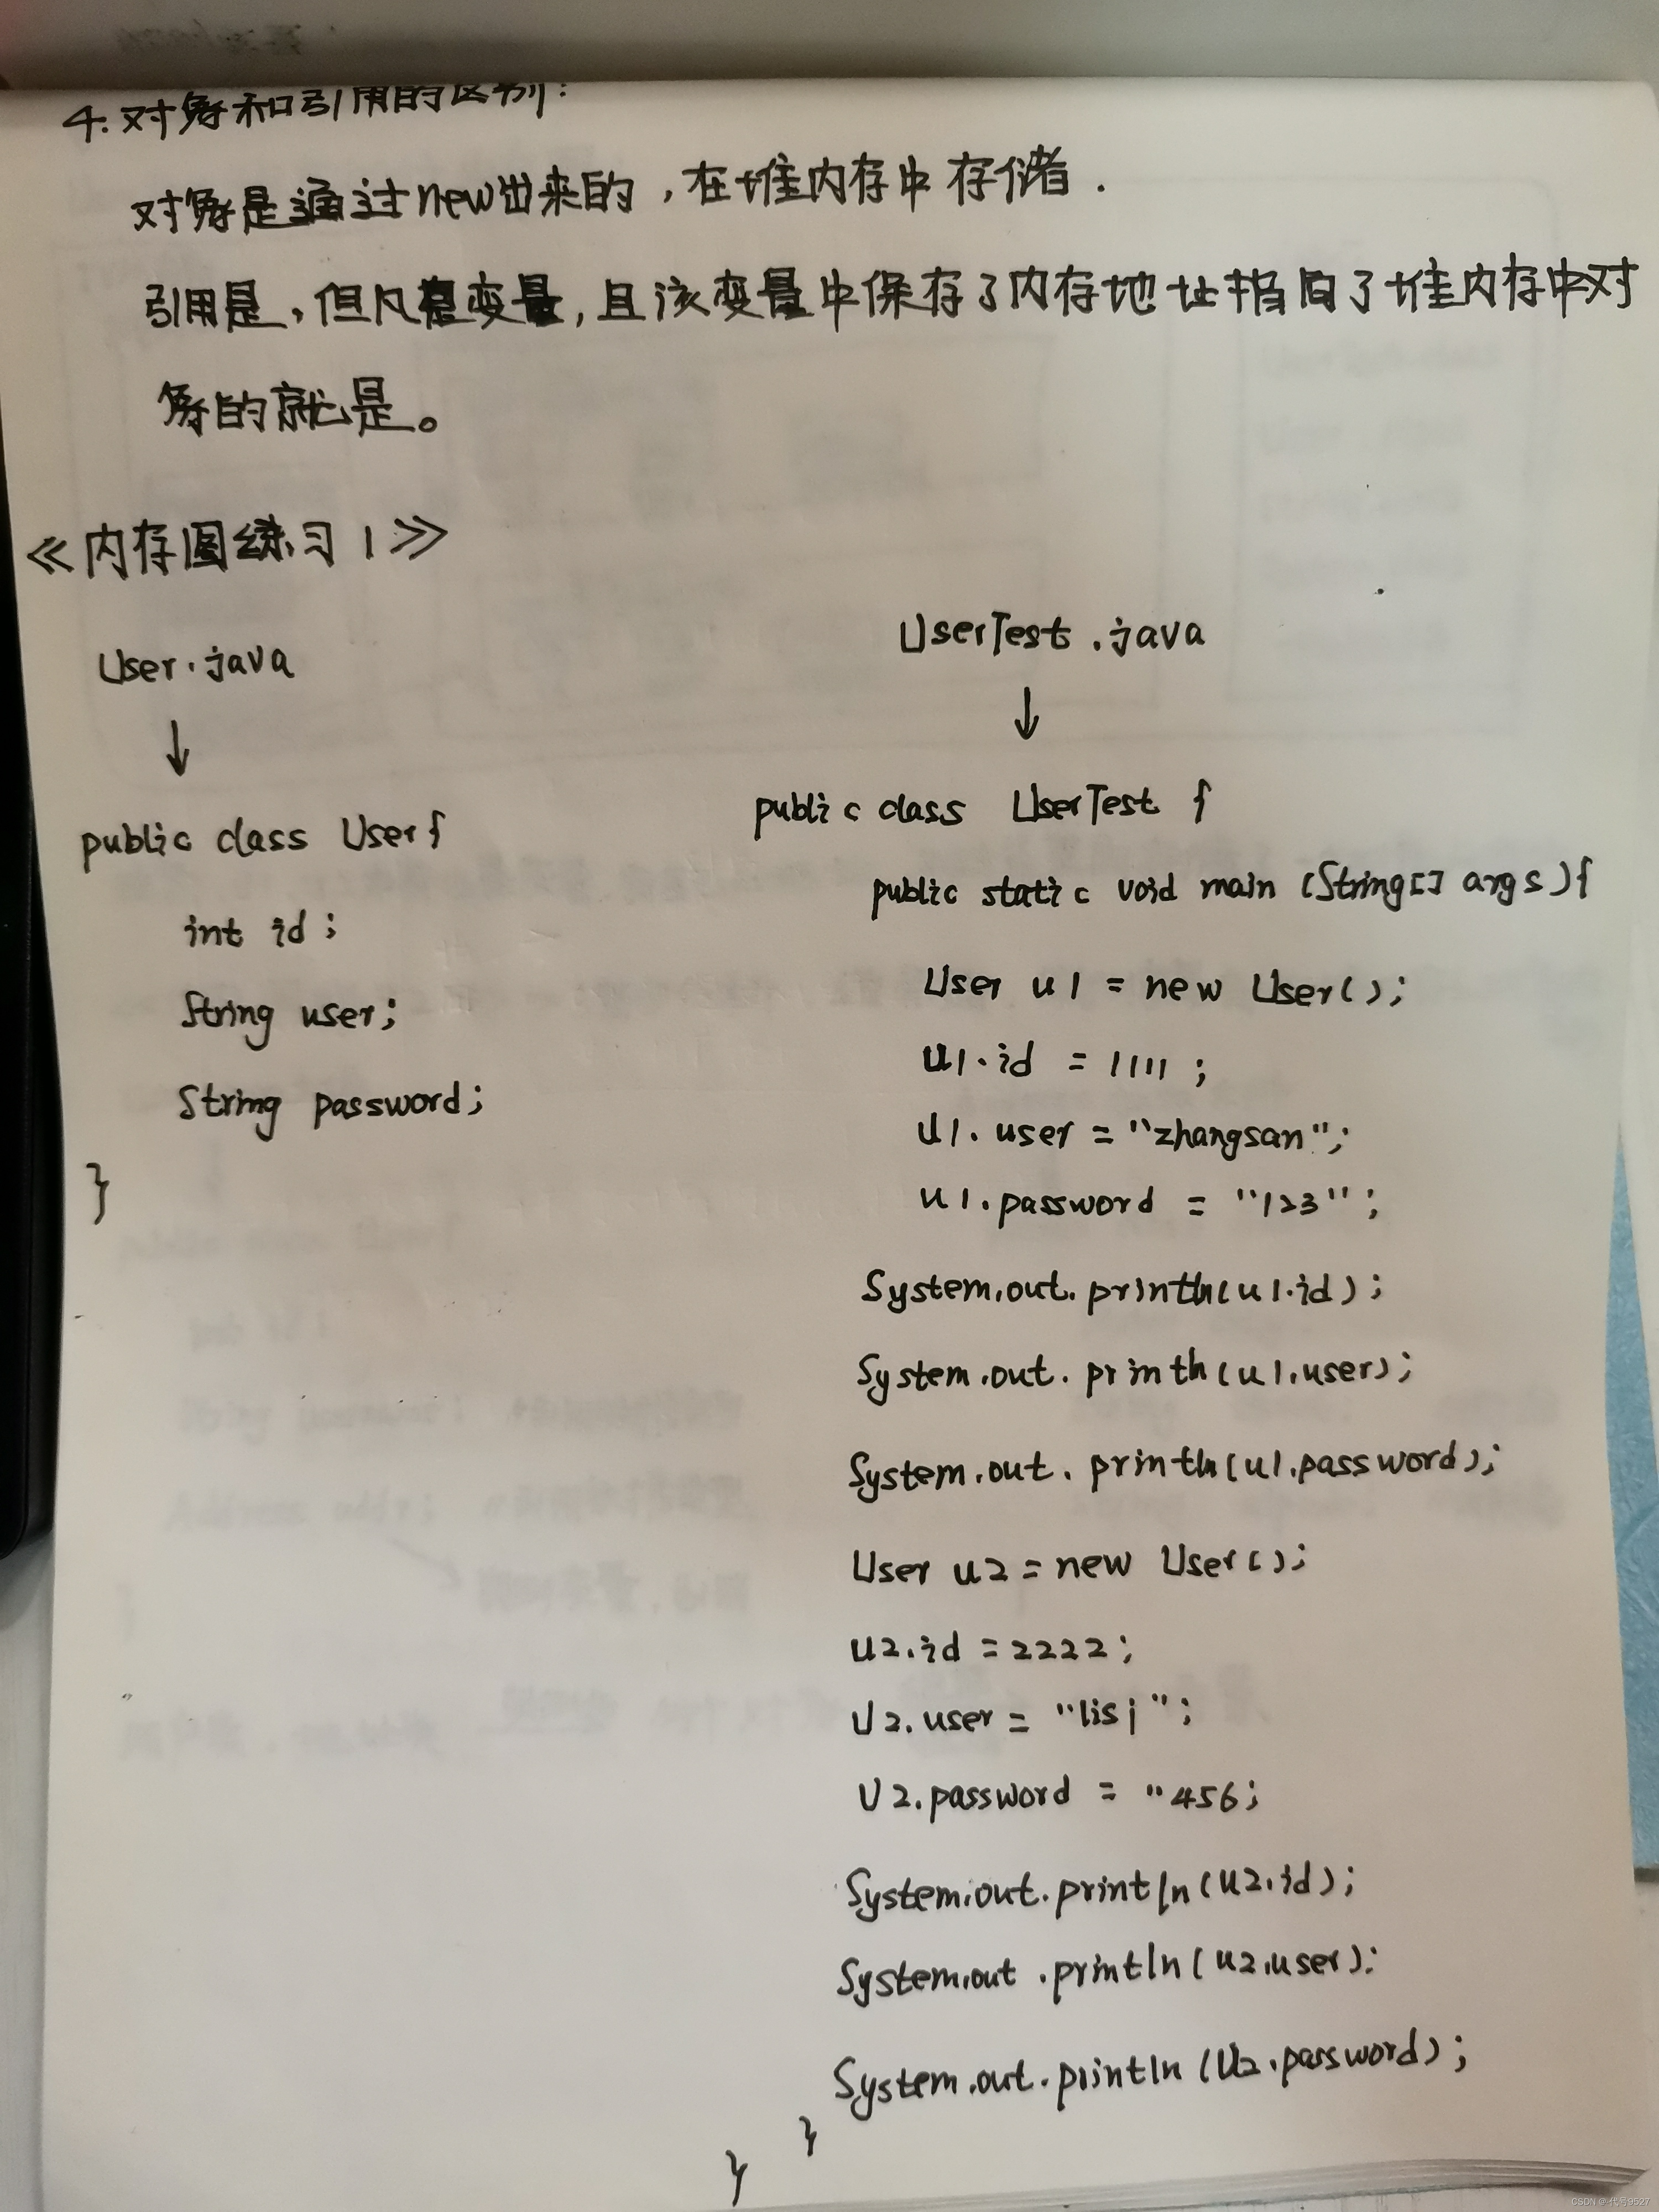 4.对象和引用的区别:
对象是通过new出来的，在堆内存中存储.
引用是,但凡是变量,且该变量中保存了内存地址指向了堆内存中对
象的就是。
《内存图练习1》
User.java
↓
public class User{
int id;
String user;
String password;
}
UserTest.java
↓
public class UserTest {
public static void main (String[] args){
User u1 = new User();
u1.id = 1111;
u1.user = "zhangsan";
u1.password = "123";
System.out.println(u1.id);
System.out.println(u1.user);
System.out.println(u1.password);
User u2 = new User();
u2.id = 2222;
U2.user = "lisi";
U2.password = "456;
System.out.println(u2.id);
System.out.println(u2.user):
System.out.println(U2.password);
}
}
CSDN @代号9527